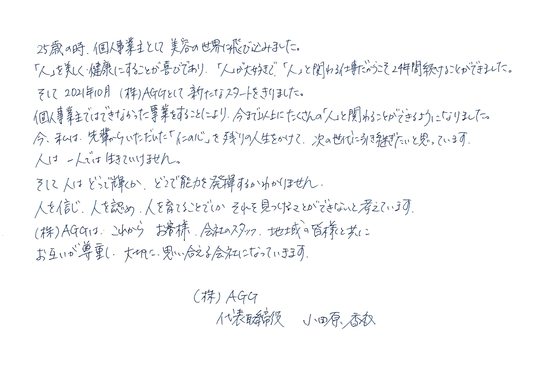 25歳の時、個人事業主として美容の世界に飛び込みました。
「人」を美しく健康にすることが喜びであり、「人」が大好きで、「人」と関わる仕事だからこそ24年間続けることができました。
そして2021年10月 (株)AGGとして新たなスタートをきりました。
個人事業主ではできなかった事業をすることにより、今まで以上にたくさんの「人」と関わることができるようになりました。
今、私は、先輩からいただいた「仁の心」を残りの人生をかけて、次の世代に引き継ぎたいと思っています。
人は一人では生きていけません。
そして人はどこで輝くか、どこで能力を発揮するかわかりません。
人を信じ、人を認め、人を育てることでしかそれを見つけることができないと考えています。
(株)AGGは、これからお客様、会社のスタッフ、地域の皆様と共に
お互いが尊重し、大切に思い合える会社になっていきます。
(株)AGG
代表取締役 小田原